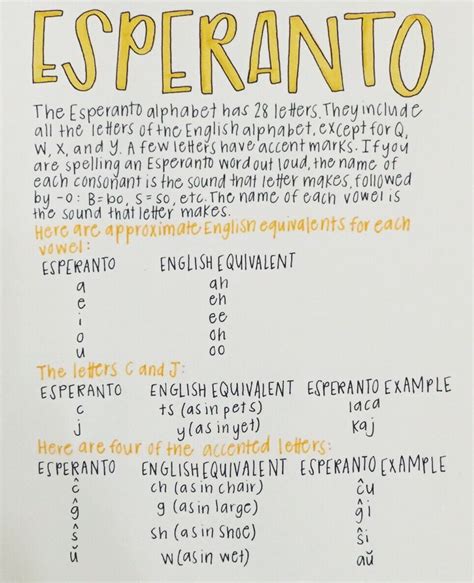 ESPERANTO
The Esperanto alphabet has 28 letters. They include
all the letters of the English alphabet, except for Q,
W, X, and Y. A few letters have accent marks. If you
are spelling an Esperanto word out loud, the name of
each consonant is the sound that letter makes, followed
by -o: B=bo, S=so, etc. The name of each vowel is
the sound that letter makes.
Here are approximate English equivalents for each
vowel:
ESPERANTO ENGLISH EQUIVALENT
a ah
e eh
i ee
o oh
u oo
The letters C and J:
ESPERANTO ENGLISH EQUIVALENT ESPERANTO EXAMPLE
c ts (as in pets) laca
j y (as in yet) kaj
Here are four of the accented letters:
ESPERANTO ENGLISH EQUIVALENT ESPERANTO EXAMPLE
ĉ ch (as in chair) ĉu
ĝ g (as in large) ĝi
ŝ sh (as in shoe) ŝi
ŭ w (as in wet) aŭ